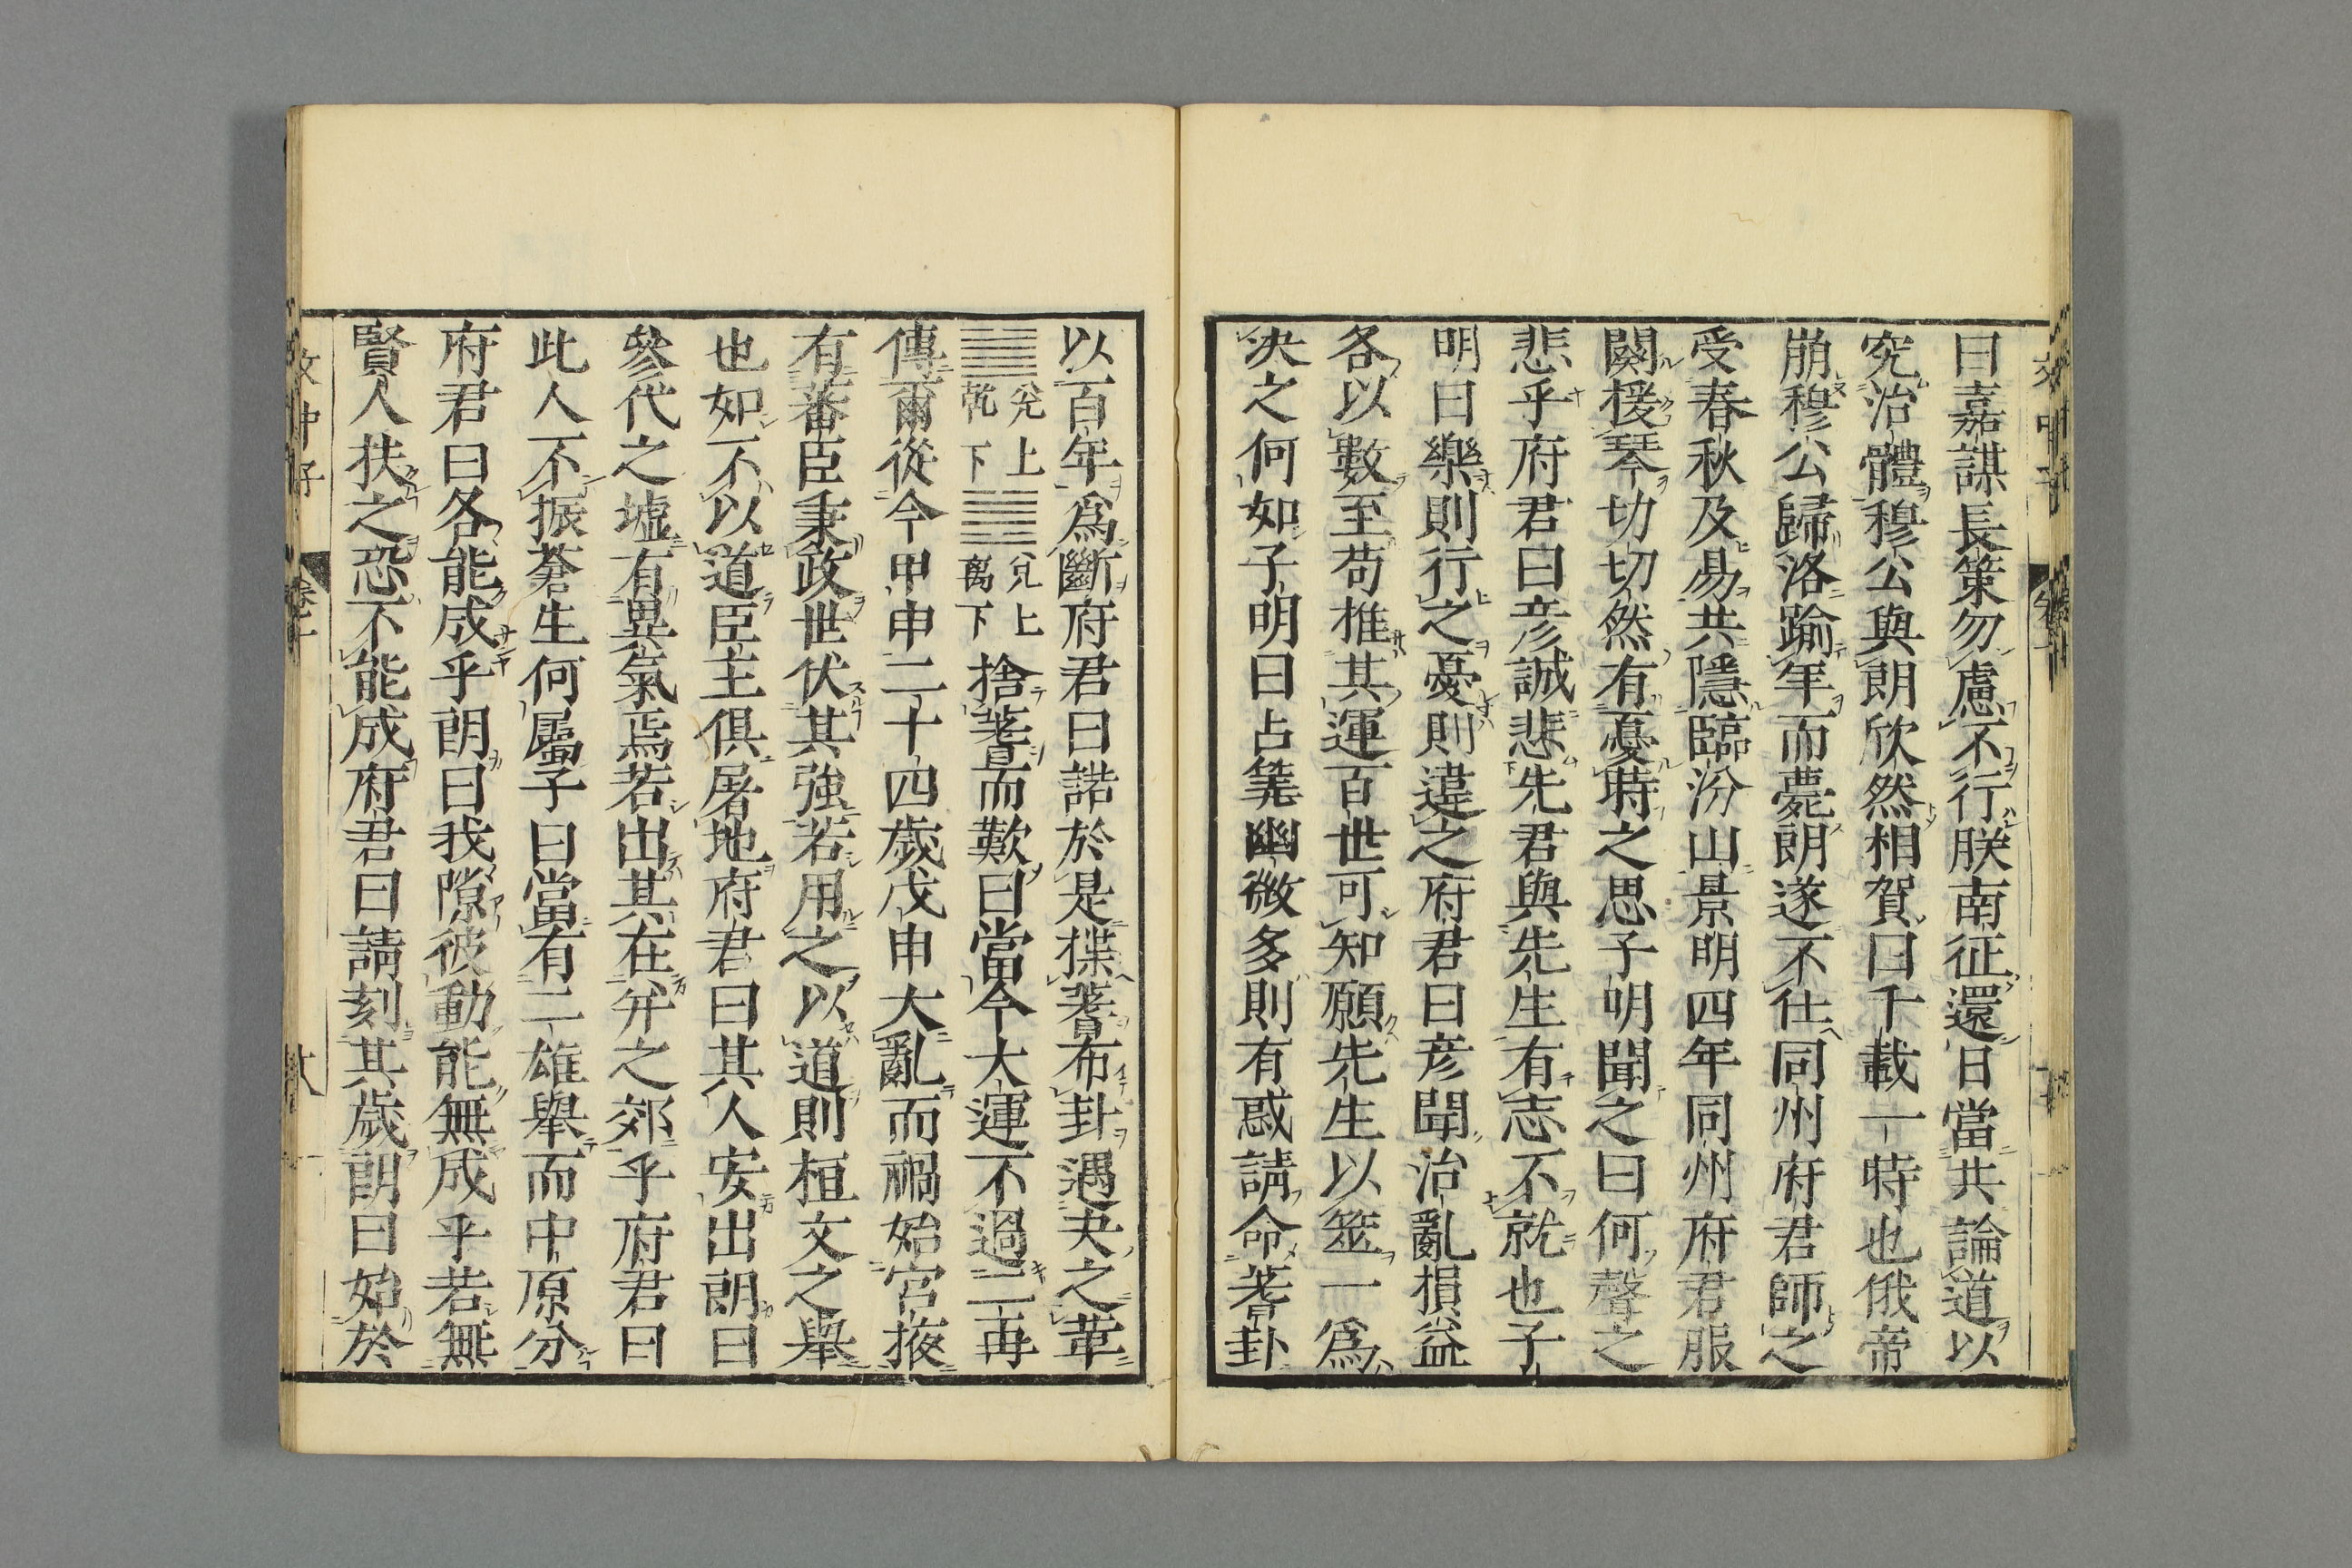 曰嘉謀長策勿慮不行朕南征還日當共論道以
究治體穆公與朗欣然相賀曰千載一時也俄帝
崩穆公歸洛踰年而薨朗遂不仕同州府君師之
受春秋及易共隱臨汾山景明四年同州府君服
闋援琴切切然有憂時之思子明聞之曰何聲之
悲乎府君曰彦誠悲先君與先生有志不就也子
明曰樂則行之憂則違之府君曰彦聞治亂損益
各以數至苟推其運百世可知願先生以筮一爲
决之何如子明曰占筭幽微多則有惑請命蓍卦
以百年爲斷府君曰諾於是揲蓍布卦遇夬之革
兌上乾下兌上离下捨蓍而歎曰當今大運不過二再
傳爾從今甲申二十四歲戊申大亂而禍始宮掖
有蕃臣秉政世伏其強若用之以道則桓文之舉
也如不以道臣主俱屠地府君曰其人安出朗曰
參代之墟有異氣焉若出其在并之郊乎府君曰
此人不振蒼生何屬子曰當有二雄舉而中原分
府君曰各能成乎朗曰我隙彼動能無成乎若無
賢人扶之恐不能成府君曰請刻其歲朗曰始於
文中子
卷十